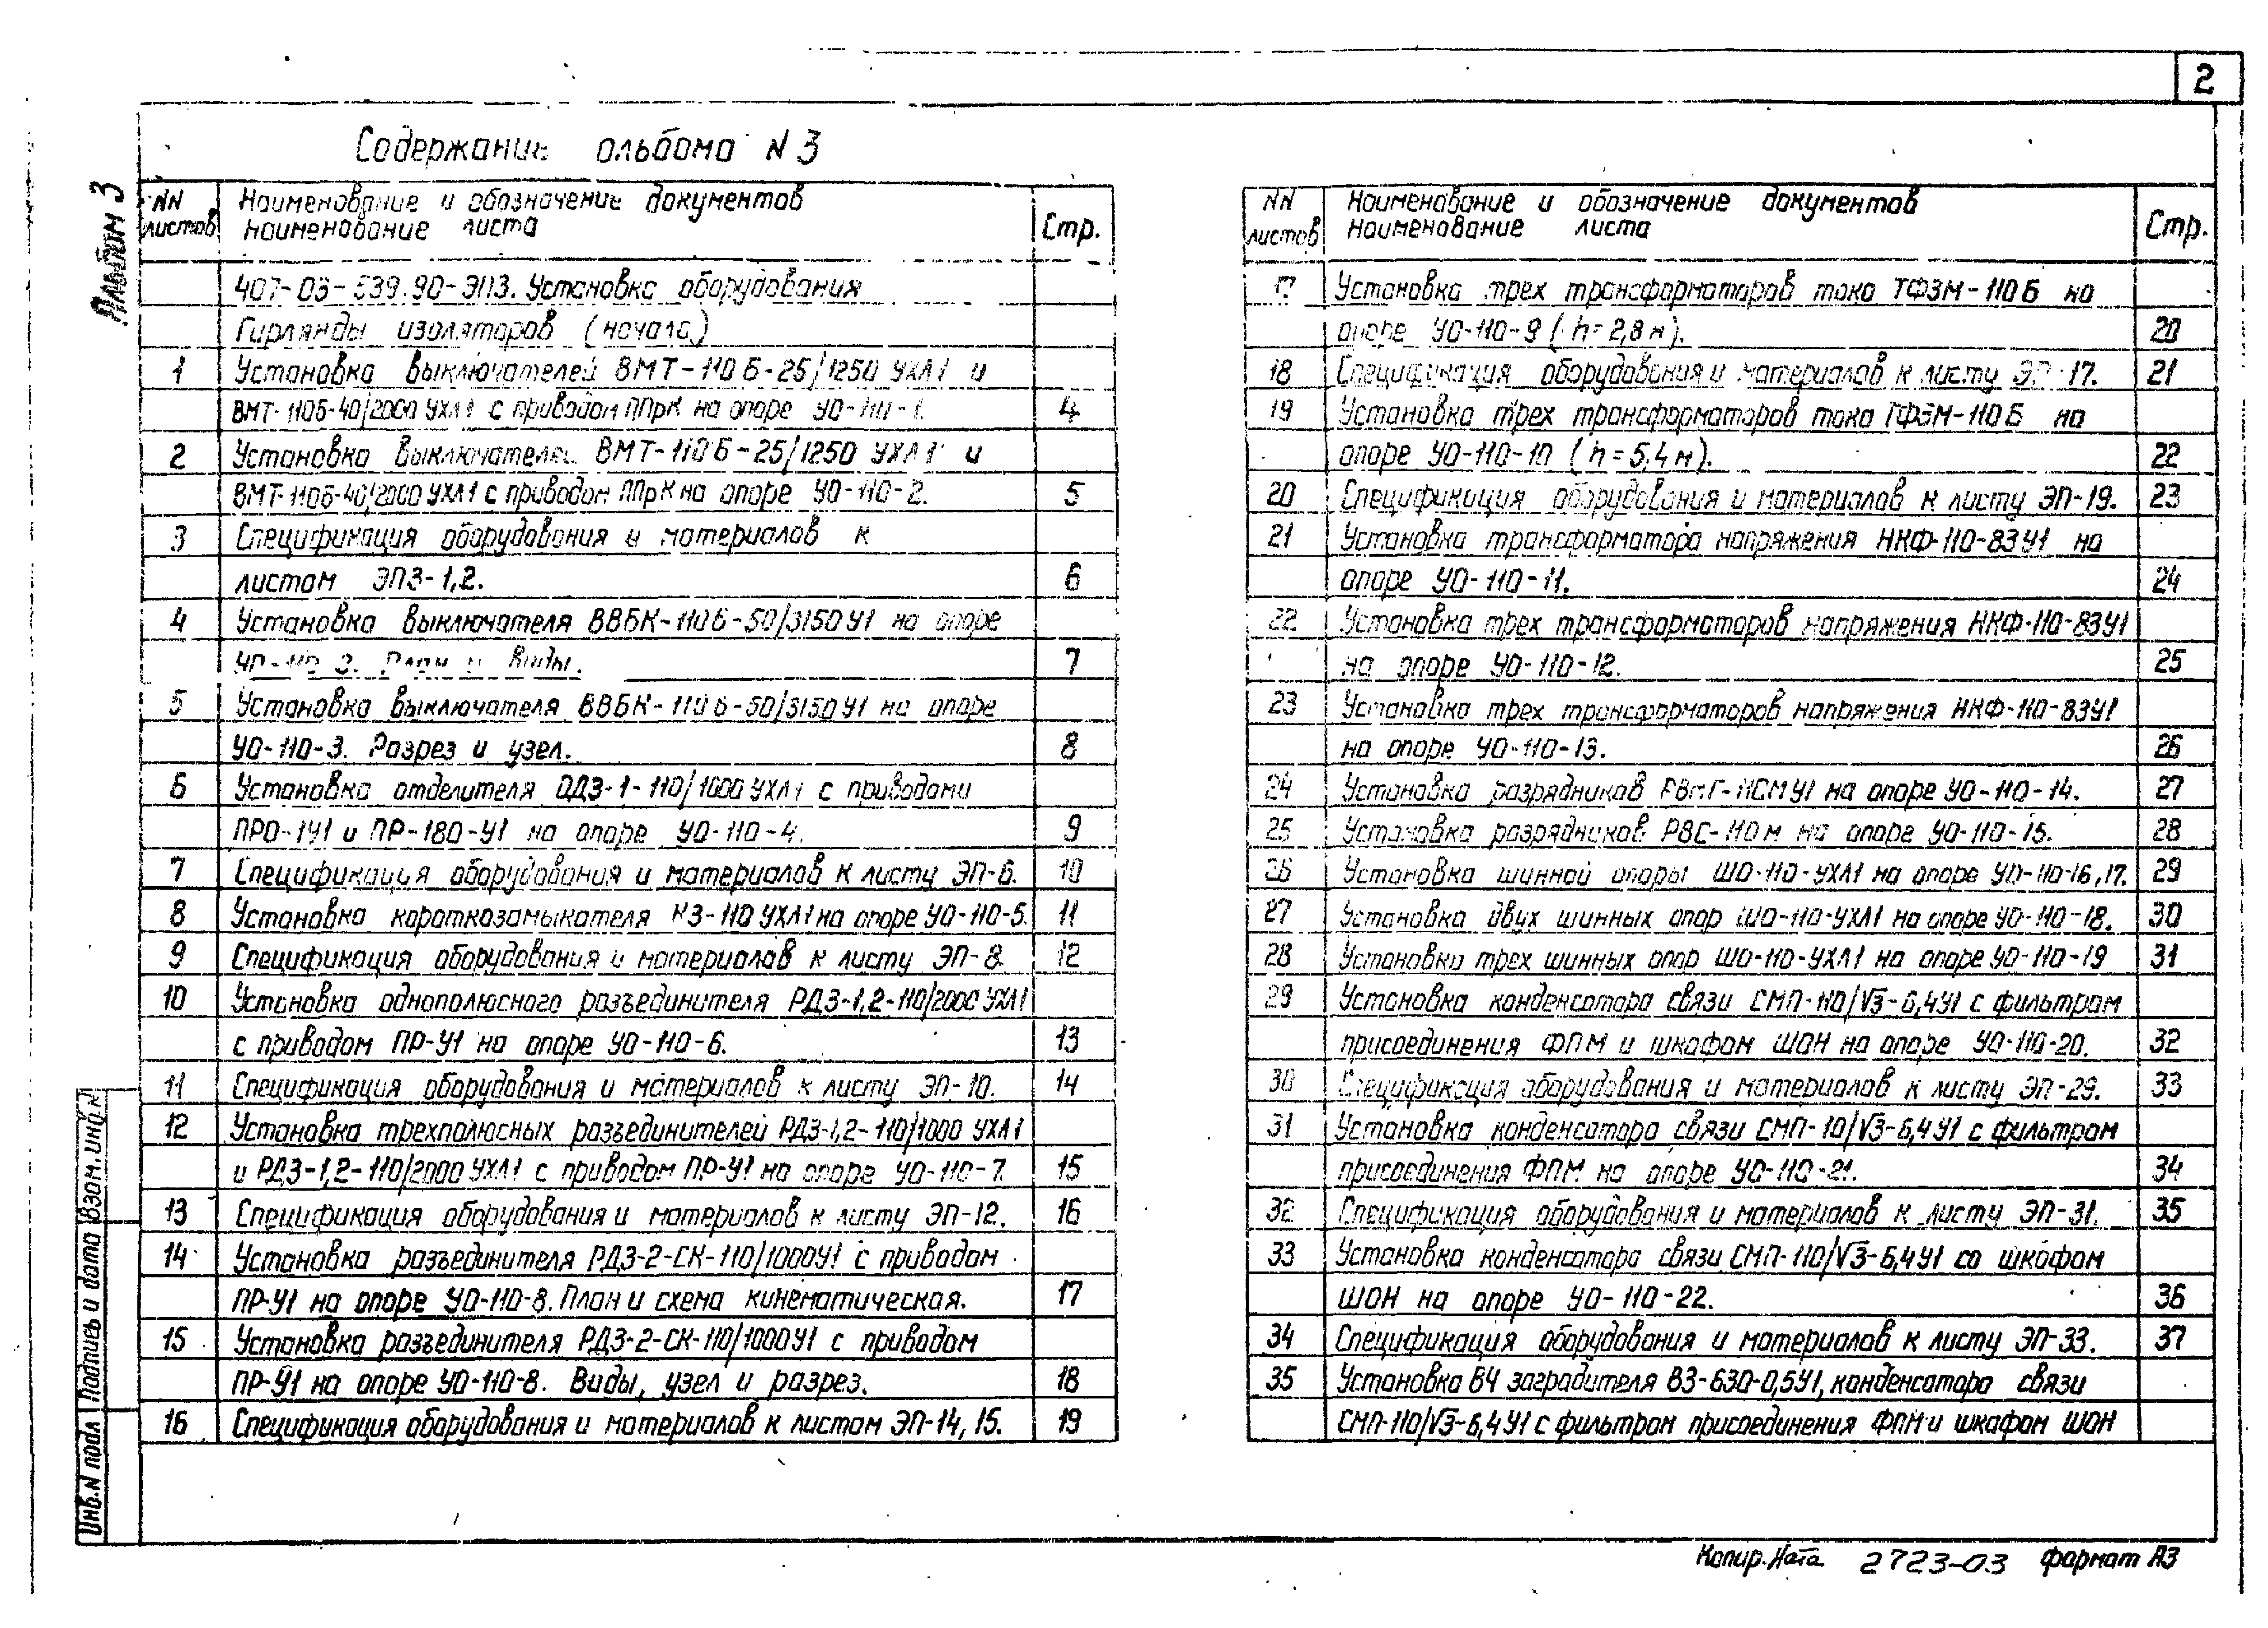 2
Содержание альбома N 3
Альбом 3
NN листов
Наименование и обозначение документов
Наименование листа
Стр.
407-03-539.90-ЭП3. Установка оборудования
Гирлянды изоляторов (начало)
1 Установка выключателей ВМТ-110Б-25/1250 УХЛ1 и
ВМТ-110Б-40/2000 УХЛ1 с приводом ППрК на опоре УО-110-1. 4
2 Установка выключателей ВМТ-110Б-25/1250 УХЛ1 и
ВМТ-110Б-40/2000 УХЛ1 с приводом ППрК на опоре УО-110-2. 5
3 Спецификация оборудования и материалов к
листам ЭП3-1,2. 6
4 Установка выключателя ВВБК-110Б-50/3150У1 на опоре
УО-110-3. План и виды. 7
5 Установка выключателя ВВБК-110Б-50/3150У1 на опоре
УО-110-3. Разрез и узел. 8
6 Установка отделителя ОДЗ-1-110/1000 УХЛ1 с приводами
ПРО-1У1 и ПР-180-У1 на опоре УО-110-4. 9
7 Спецификация оборудования и материалов к листу ЭП-6. 10
8 Установка короткозамыкателя КЗ-110 УХЛ1 на опоре УО-110-5. 11
9 Спецификация оборудования и материалов к листу ЭП-8. 12
10 Установка однополюсного разъединителя РДЗ-1,2-110/2000 УХЛ1
с приводом ПР-У1 на опоре УО-110-6. 13
11 Спецификация оборудования и материалов к листу ЭП-10. 14
12 Установка трехполюсных разъединителей РДЗ-1,2-110/1000 УХЛ1
и РДЗ-1,2-110/2000 УХЛ1 с приводом ПР-У1 на опоре УО-110-7. 15
13 Спецификация оборудования и материалов к листу ЭП-12. 16
14 Установка разъединителя РДЗ-2-СК-110/1000У1 с приводом
ПР-У1 на опоре УО-110-8. План и схема кинематическая. 17
15 Установка разъединителя РДЗ-2-СК-110/1000У1 с приводом
ПР-У1 на опоре УО-110-8. Виды, узел и разрез. 18
16 Спецификация оборудования и материалов к листам ЭП-14, 15. 19
NN листов
Наименование и обозначение документов
Наименование листа
Стр.
17 Установка трех трансформаторов тока ТФЗМ-110Б на
опоре УО-110-9 (h=2,8м). 20
18 Спецификация оборудования и материалов к листу ЭП-17. 21
19 Установка трех трансформаторов тока ТФЗМ-110Б на
опоре УО-110-10 (h=5,4м). 22
20 Спецификация оборудования и материалов к листу ЭП-19. 23
21 Установка трансформатора напряжения НКФ-110-83У1 на
опоре УО-110-11. 24
22 Установка трех трансформаторов напряжения НКФ-110-83У1
на опоре УО-110-12. 25
23 Установка трех трансформаторов напряжения НКФ-110-83У1
на опоре УО-110-13. 26
24 Установка разрядников на опоре УО-110-14. 27
25 Установка разрядников РВС-110м на опоре УО-110-15. 28
26 Установка шинной опоры ШО-110-УХЛ1 на опоре УО-110-16,17. 29
27 Установка двух шинных опор ШО-110-УХЛ1 на опоре УО-110-18. 30
28 Установка трех шинных опор ШО-110-УХЛ1 на опоре УО-110-19 31
29 Установка конденсатора связи СМП-110/√3-6,4У1 с фильтром
присоединения ФПМ и шкафом ШОН на опоре УО-110-20. 32
30 Спецификация оборудования и материалов к листу ЭП-29. 33
31 Установка конденсатора связи СМП-10/√3-6,4У1 с фильтром
присоединения ФПМ на опоре УО-110-21. 34
32 Спецификация оборудования и материалов к листу ЭП-31. 35
33 Установка конденсатора связи СМП-110/√3-6,4У1 со шкафом
ШОН на опоре УО-110-22. 36
34 Спецификация оборудования и материалов к листу ЭП-33. 37
35 Установка ВЧ заградителя ВЗ-630-0,5У1, конденсатора связи
СМП-110/√3-6,4У1 с фильтром присоединения ФПМ и шкафом ШОН
Инв.N подл Подпись и дата Взам.инв.N
Копир.Ната 2723-03 формат А3